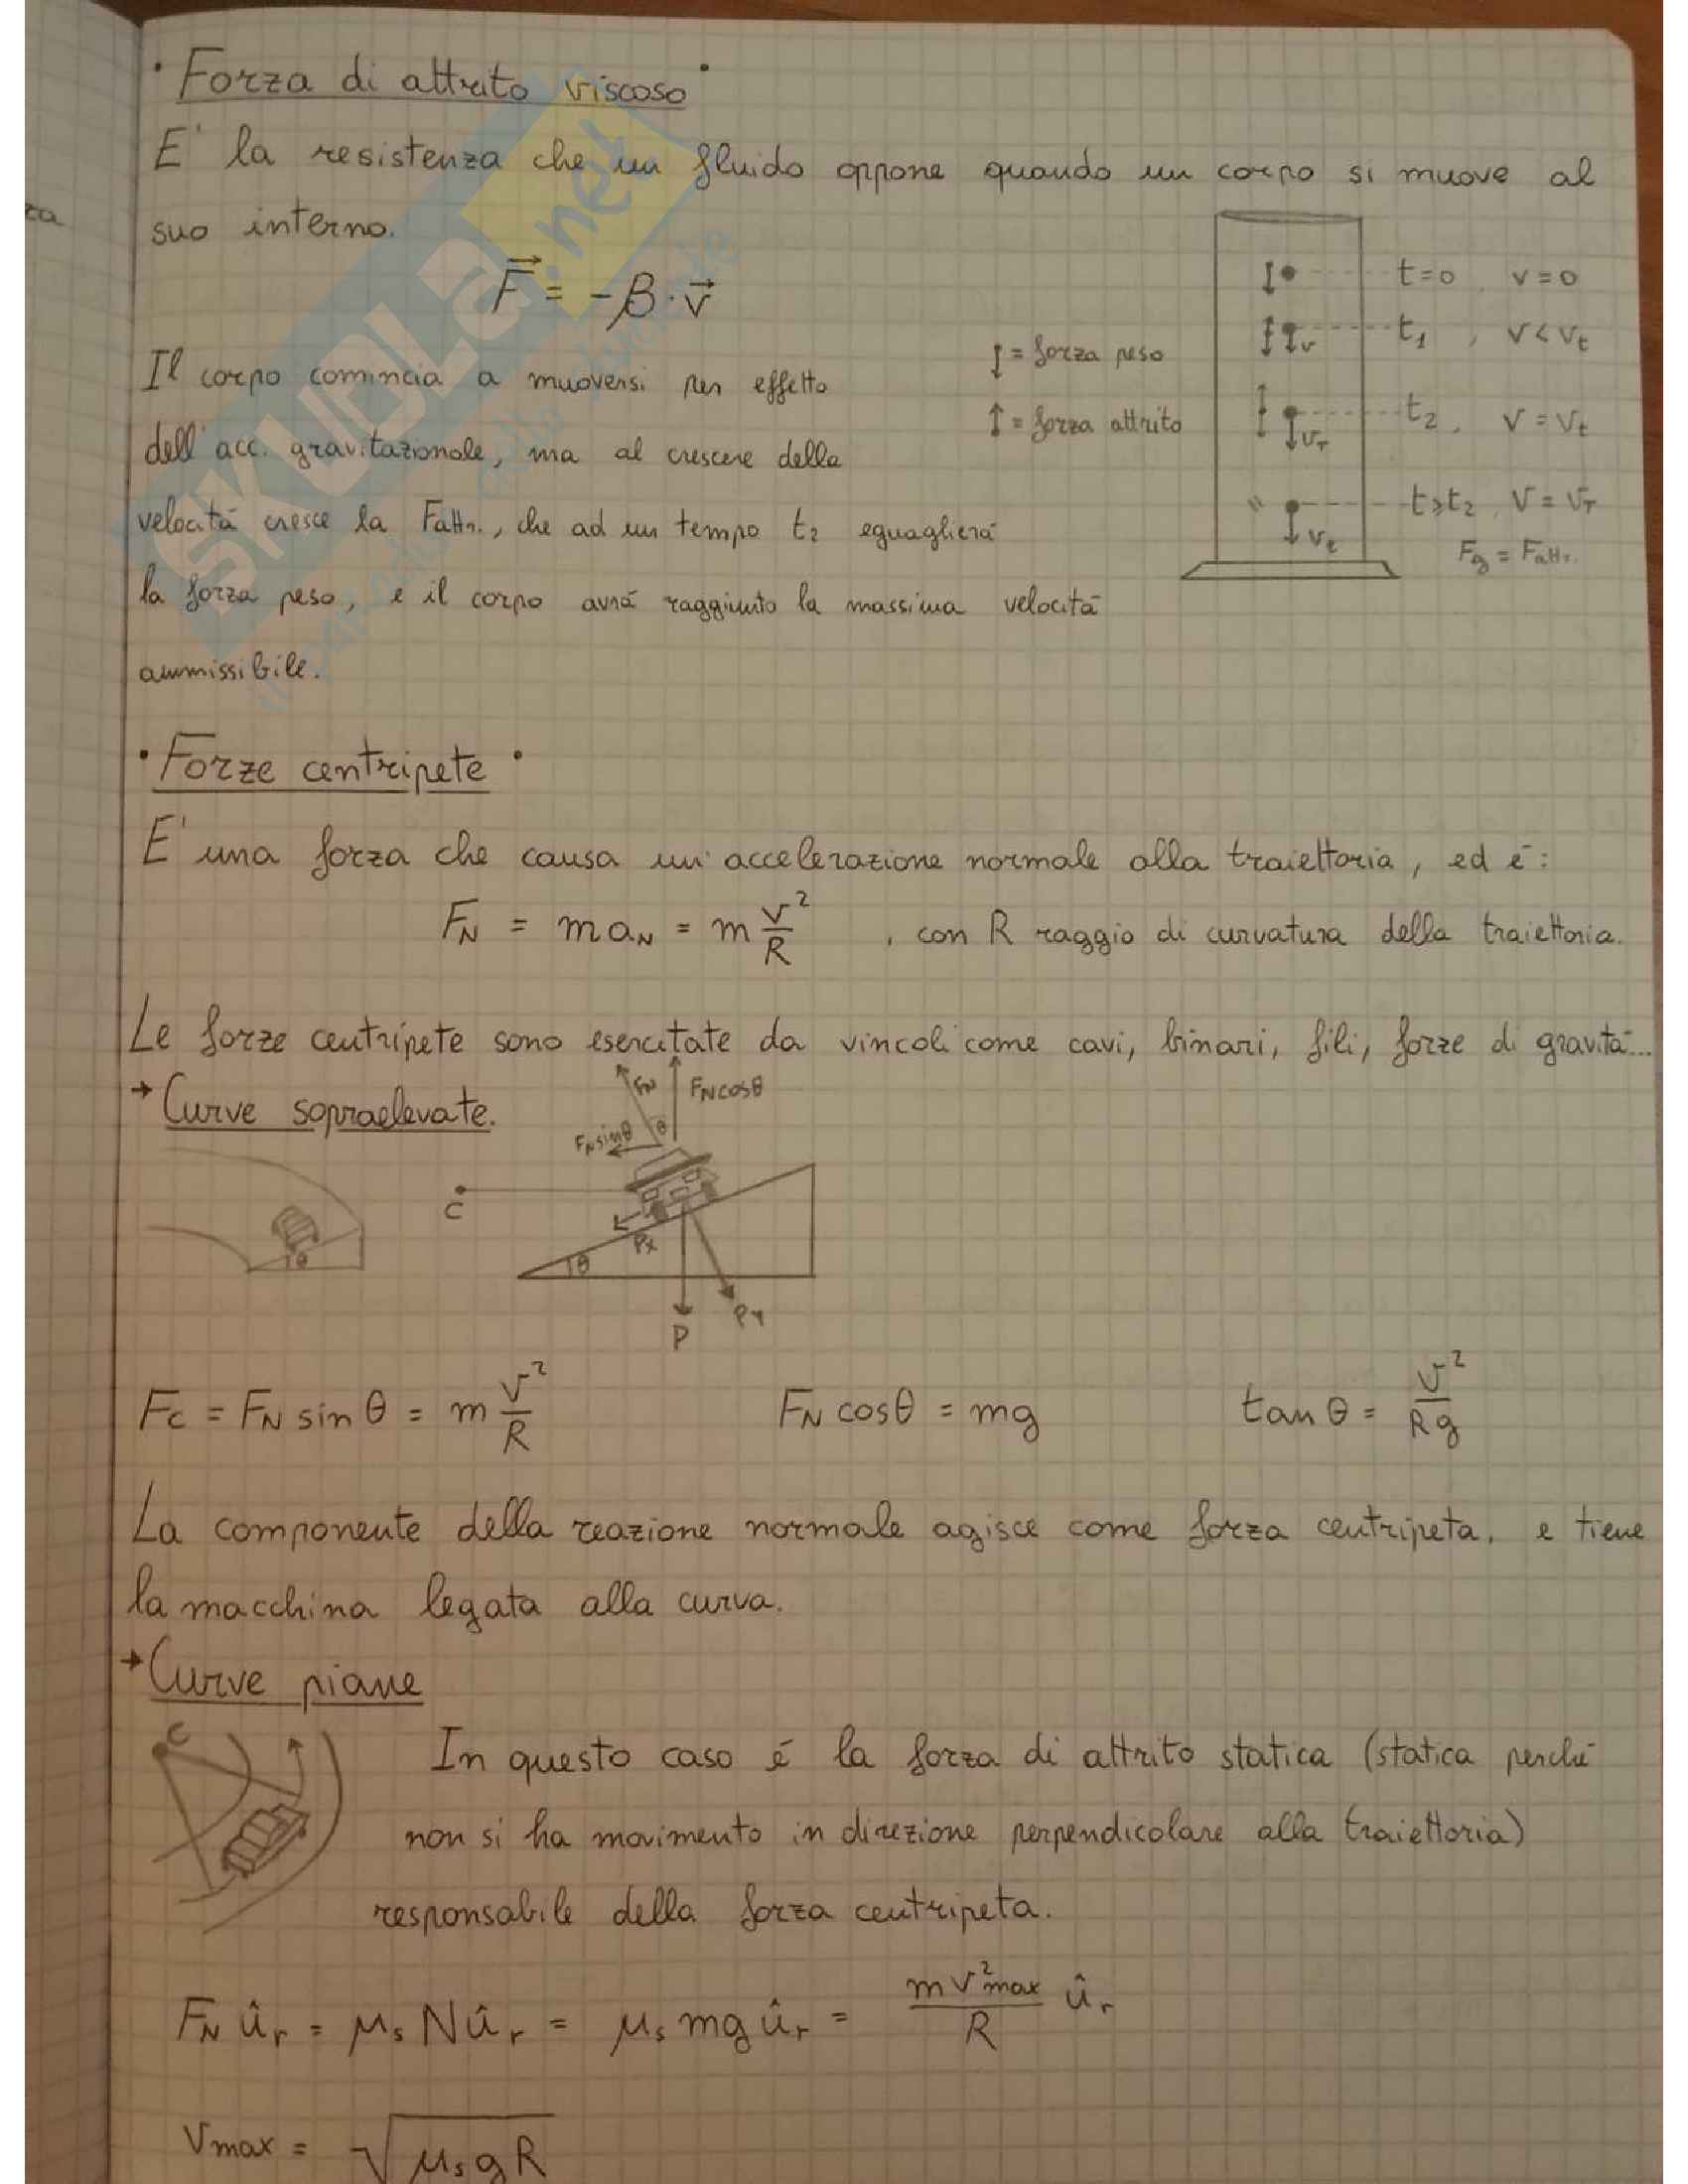 • Forza di attrito viscoso •
E' la resistenza che un fluido oppone quando un corpo si muove al
za
suo interno.
F = -β·v
t=0 , v=0
t1 , v < vt
t2 , v = vt
t≥t2 , v = vT
Fg = Fattr.
v
vT
vt
↓ = forza peso
↑ = forza attrito
Il corpo comincia a muoversi per effetto
dell'acc. gravitazionale, ma al crescere della
velocità cresce la Fattr., che ad un tempo t2 eguaglierà
la forza peso, e il corpo avrà raggiunto la massima velocità
ammissibile.
• Forze centripete •
E' una forza che causa un'accelerazione normale alla traiettoria, ed è:
FN = m aN = m v²/R , con R raggio di curvatura della traiettoria.
Le forze centripete sono esercitate da vincoli come cavi, binari, fili, forze di gravità...
→ Curve sopraelevate.
FN
FN cosθ
FN sinθ
θ
C
Px
θ
θ
Py
P
Fc = FN sin θ = m v²/R
FN cosθ = mg
tan θ = v²/Rg
La componente della reazione normale agisce come forza centripeta, e tiene
la macchina legata alla curva.
→ Curve piane
C
In questo caso è la forza di attrito statica (statica perché
non si ha movimento in direzione perpendicolare alla traiettoria)
responsabile della forza centripeta.
FN ûr = μs N ûr = μs mg ûr = m v²max/R ûr
Vmax = √μs g R
SKUOLA.net